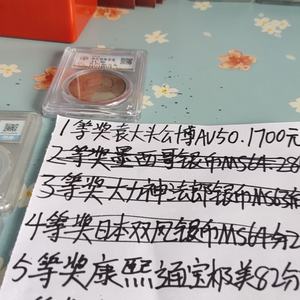 1等奖袁大头公博AU50.1700元
2等奖墨西哥银币MS64.28
3等奖大力神法郎银币MS65
4等奖日本双凤银币MS64分2
5等奖康熙通宝极美82分